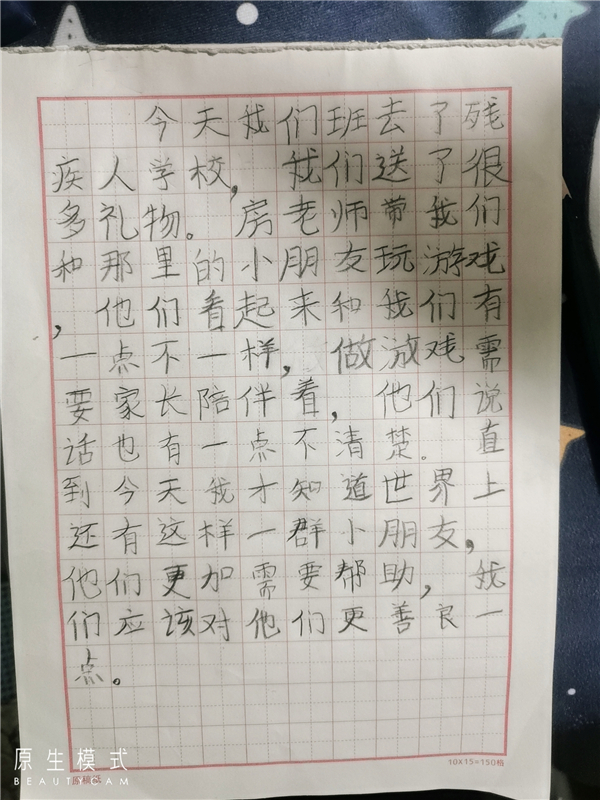 今天我们班去了残
疾人学校，我们送了很
多礼物。房老师带我们
和那里的小朋友玩游戏
，他们看起来和我们有
一点不一样，做游戏需
要家长陪伴着，他们说
话也有一点不清楚。直
到今天我才知道世界上
还有这样一群小朋友，
他们更加需要帮助，我
们应该对他们更善良一
点。
10x15=150格
原生模式
BEAUTYCAM